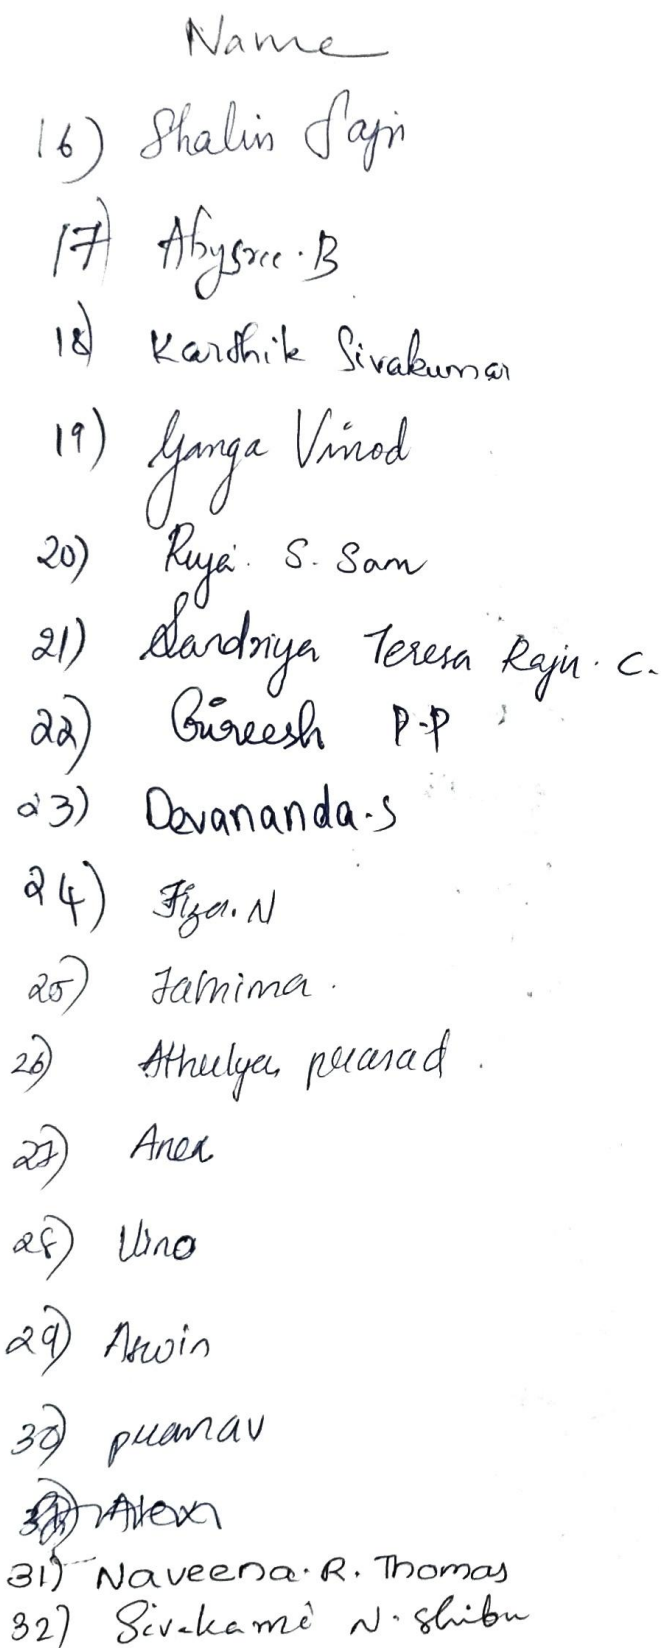 Name
16) Shalin Saji
17) Abysree. B
18) Karthik Sivakumar
19) Ganga Vinod
20) Riya. S. Sam
21) Sandriya Teresa Raju. C.
22) Gireesh P.P
23) Devananda.S
24) Fiza. N
25) Fathima.
26) Athulya prasad.
27) Anea
28) Vino
29) Aswin
30) pranav
31) Naveena. R. Thomas
32) Sivakami N. Shibu